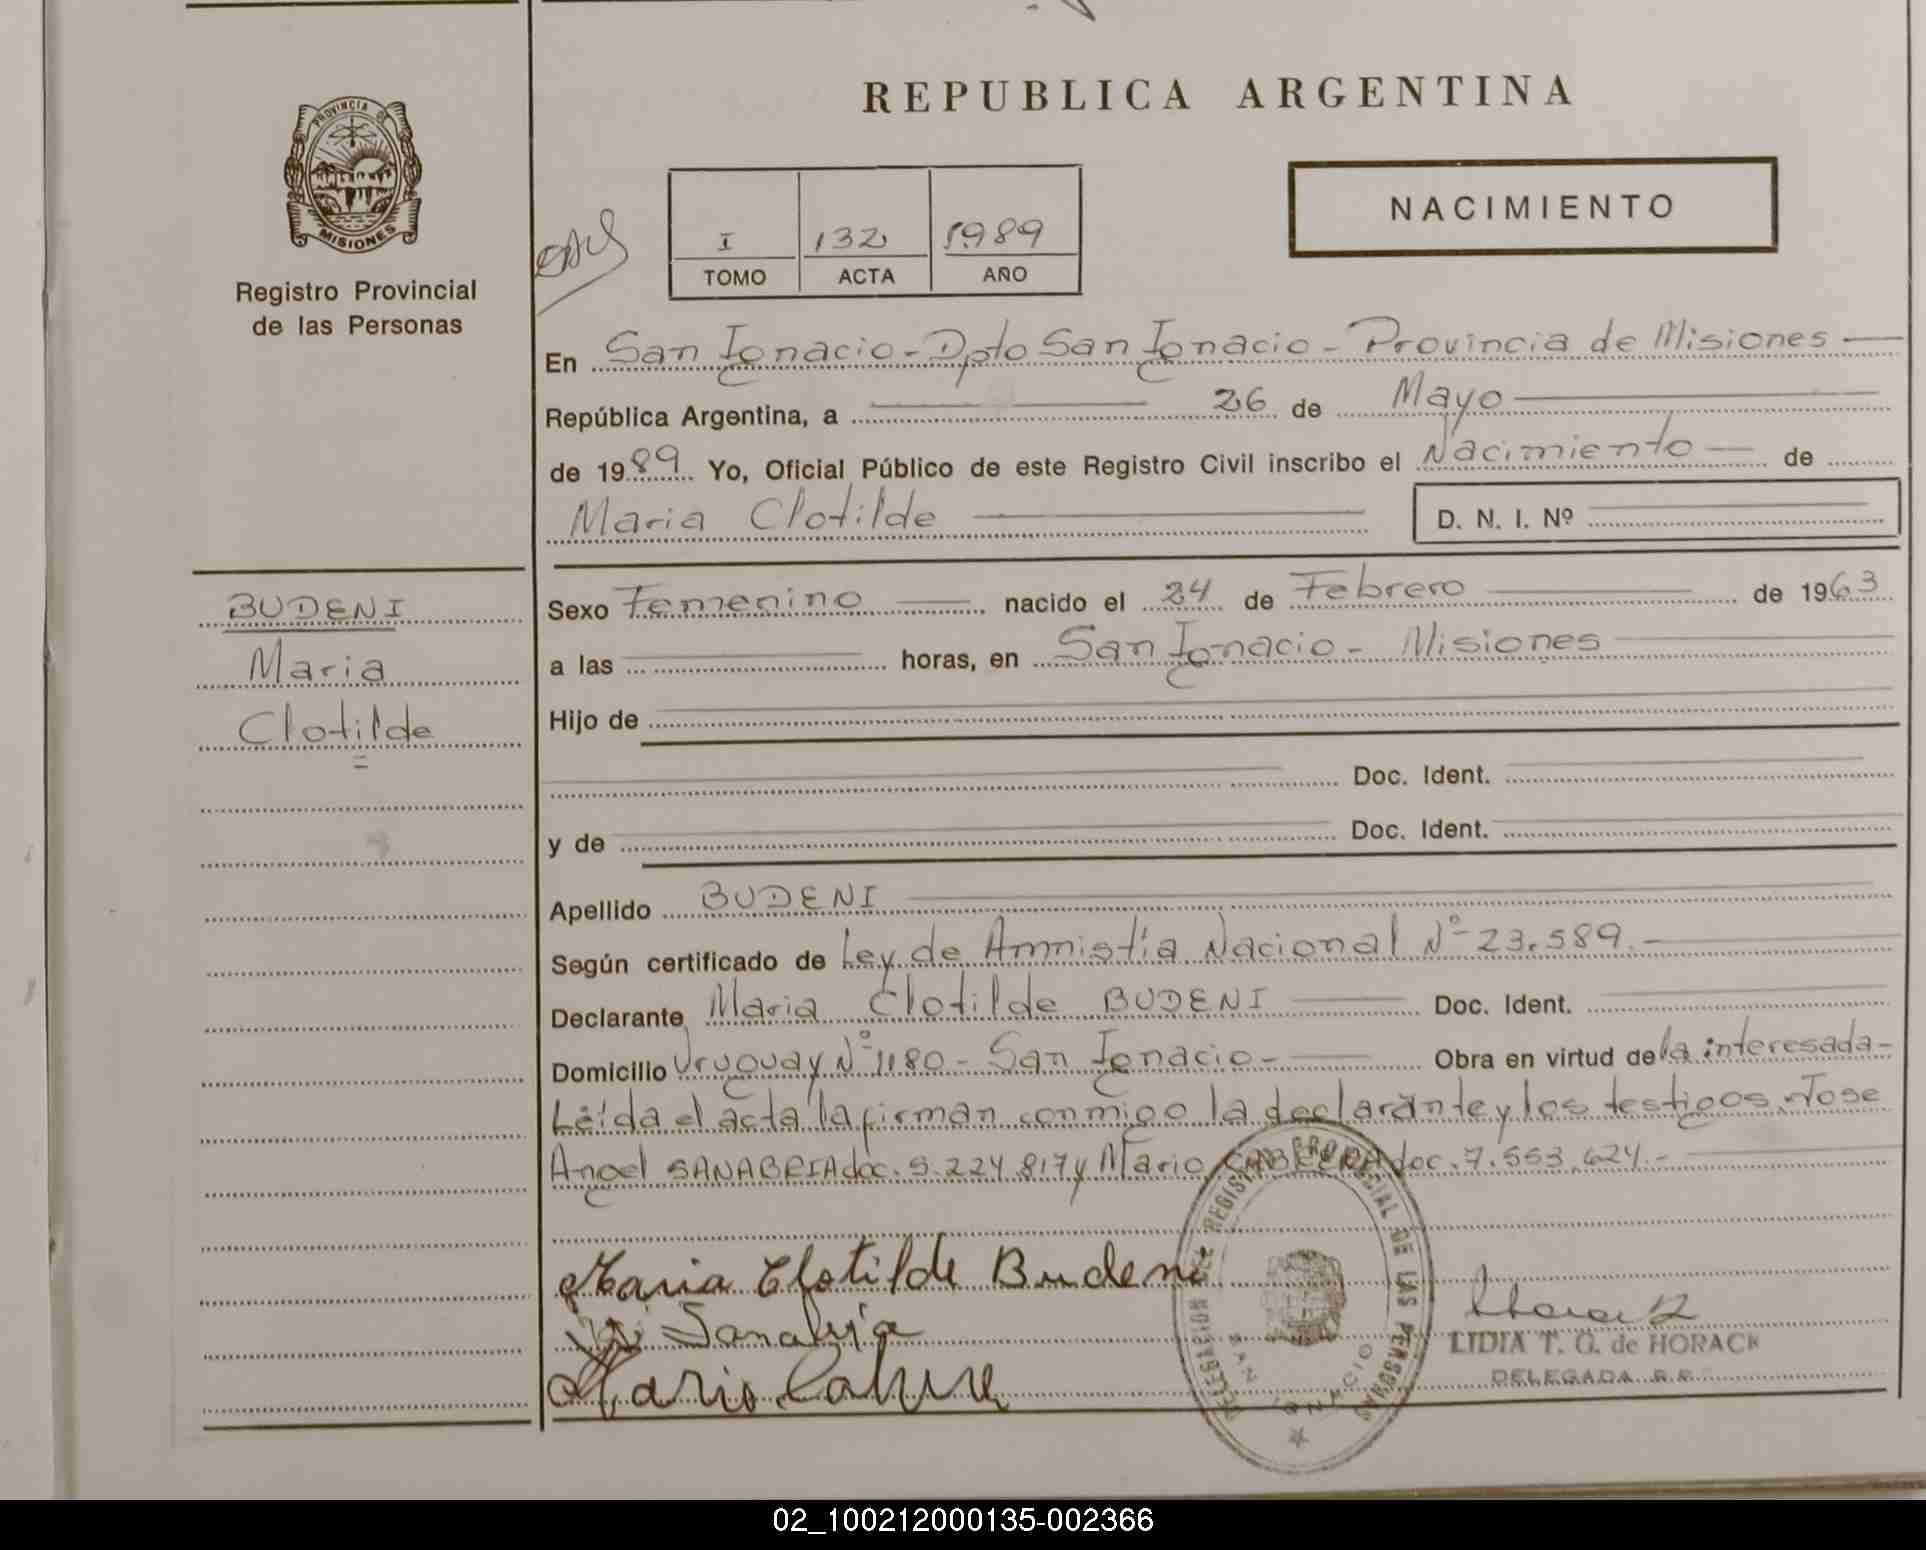 REPUBLICA ARGENTINA
PROVINCIA DE
MISIONES
Registro Provincial
de las Personas
I 132 1989
TOMO ACTA AÑO
NACIMIENTO
En San Ignacio - Dpto San Ignacio - Provincia de Misiones
República Argentina, a 26 de Mayo
de 1989 Yo, Oficial Público de este Registro Civil inscribo el Nacimiento de
Maria Clotilde D. N. I. Nº
BUDENI
Maria
Clotilde
Sexo Femenino nacido el 24 de Febrero de 1963
a las horas, en San Ignacio - Misiones
Hijo de
Doc. Ident.
y de Doc. Ident.
Apellido BUDENI
Según certificado de Ley de Amnistía Nacional Nº 23.589.-
Declarante Maria Clotilde BUDENI Doc. Ident.
Domicilio Uruguay Nº 1180 - San Ignacio - Obra en virtud de la interesada -
Leída el acta la firman conmigo la declarante y los testigos Jose
Angel SANABRIA doc. 5.224.817 y Mario CABRERA doc. 7.553.624.-
Maria Clotilde Budeni
Sanabria
Mario Cabrera
DELEGACION DEL REGISTRO PROVINCIAL DE LAS PERSONAS
SAN IGNACIO
LIDIA T. G. de HORACK
DELEGADA R.P.
02_100212000135-002366